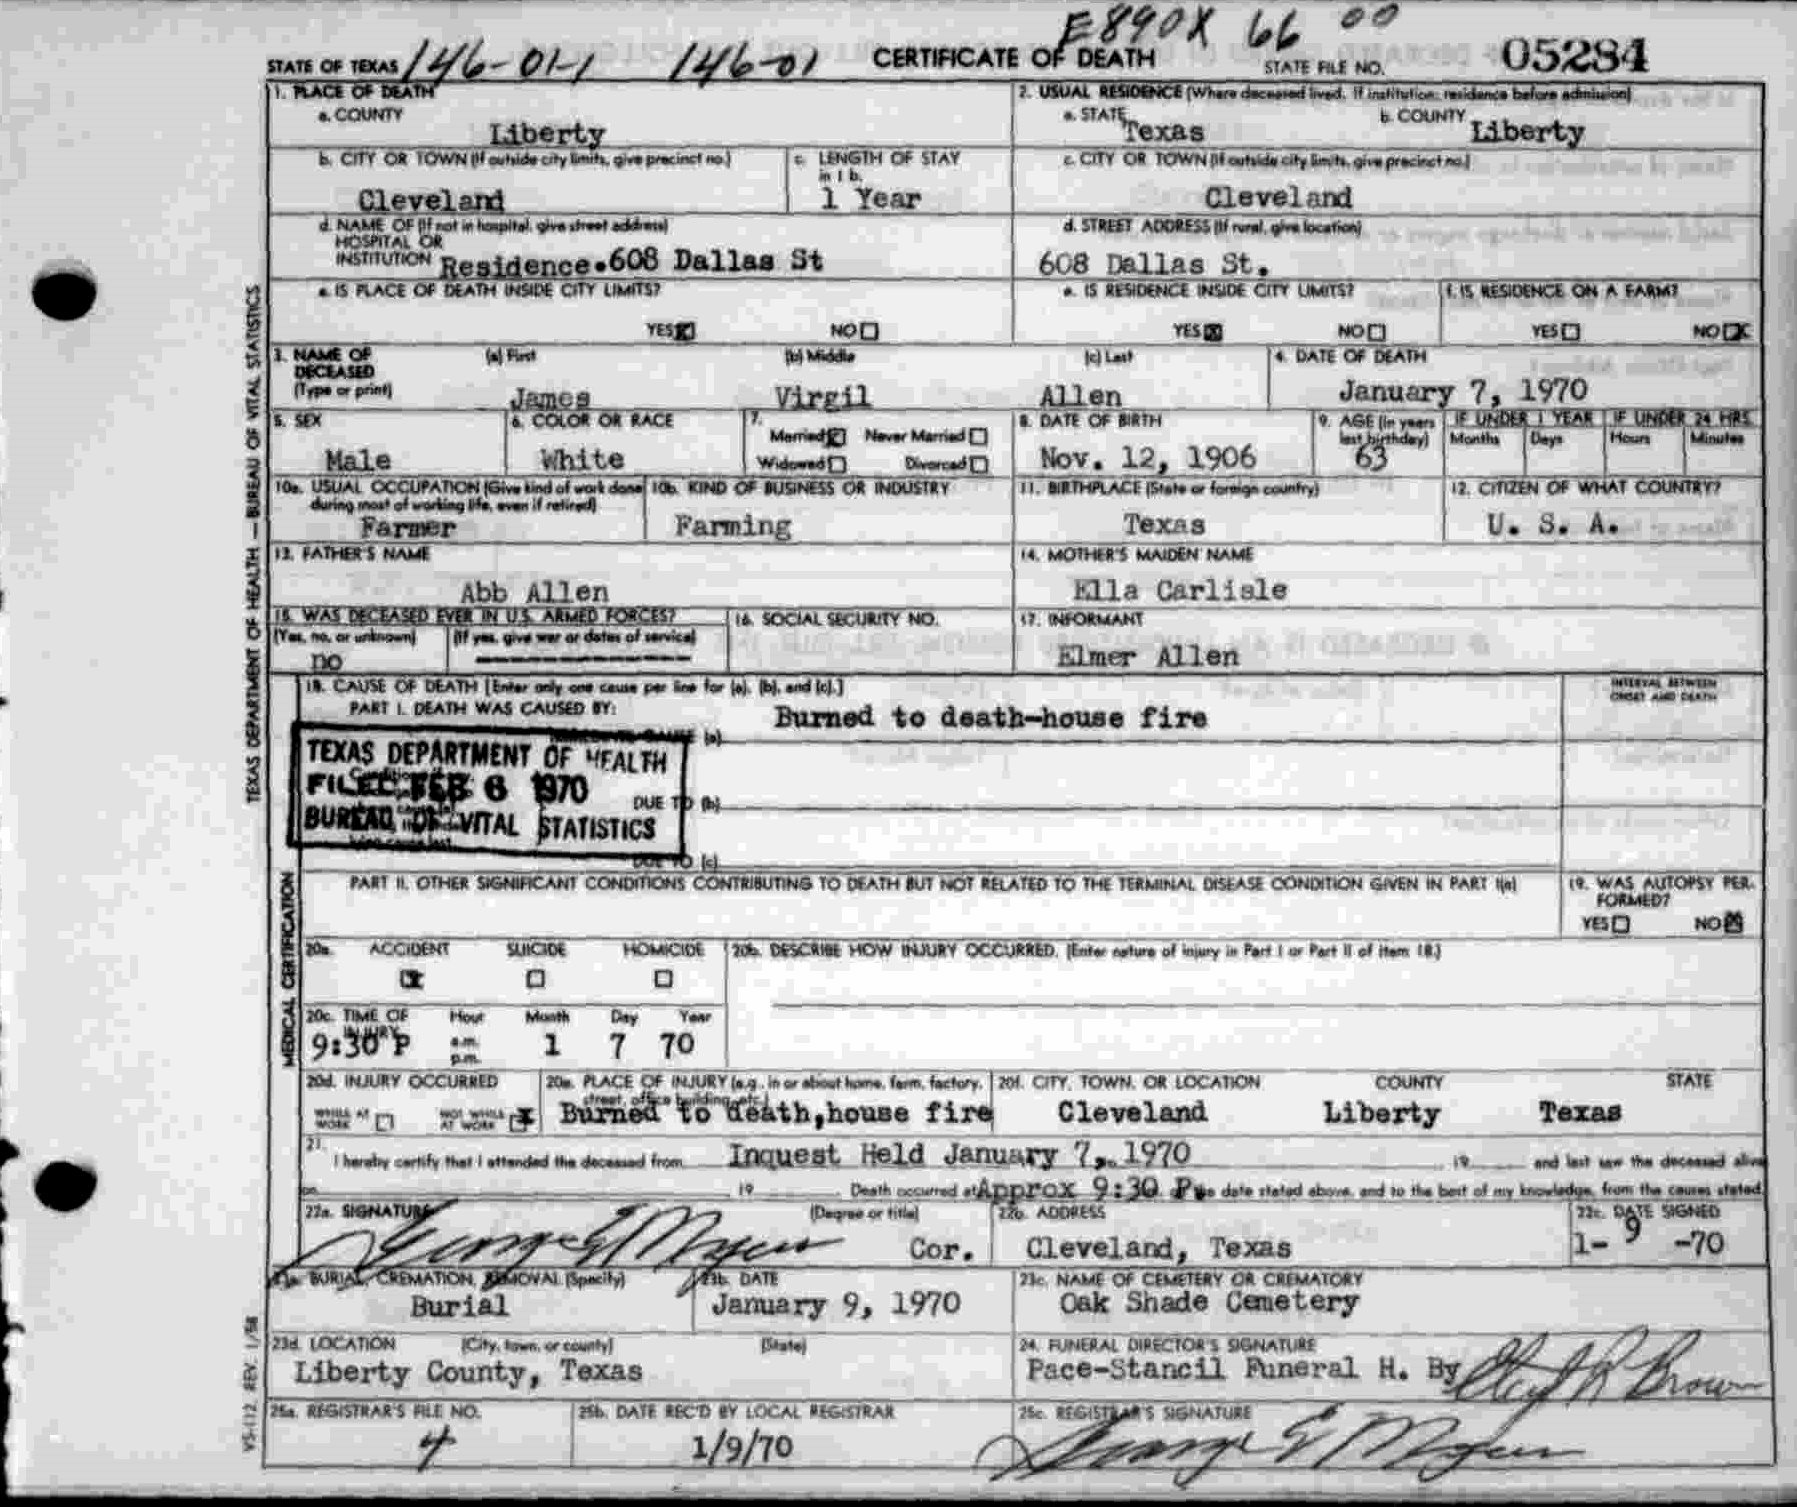 E890X 66 00
STATE OF TEXAS 146-01-1 146-01 CERTIFICATE OF DEATH STATE FILE NO. 05284
1. PLACE OF DEATH
a. COUNTY
Liberty
2. USUAL RESIDENCE (Where deceased lived. If institution: residence before admission)
a. STATE Texas b. COUNTY Liberty
b. CITY OR TOWN (If outside city limits, give precinct no.)
Cleveland
c. LENGTH OF STAY in 1 b.
1 Year
c. CITY OR TOWN (If outside city limits, give precinct no.)
Cleveland
d. NAME OF (If not in hospital, give street address)
HOSPITAL OR
INSTITUTION Residence.608 Dallas St
d. STREET ADDRESS (If rural, give location)
608 Dallas St.
e. IS PLACE OF DEATH INSIDE CITY LIMITS?
YES NO
e. IS RESIDENCE INSIDE CITY LIMITS?
YES NO
f. IS RESIDENCE ON A FARM?
YES NO
3. NAME OF DECEASED (Type or print)
(a) First (b) Middle (c) Last
James Virgil Allen
4. DATE OF DEATH
January 7, 1970
5. SEX
Male
6. COLOR OR RACE
White
7.
Married Never Married
Widowed Divorced
8. DATE OF BIRTH
Nov. 12, 1906
9. AGE (in years last birthday)
63
IF UNDER 1 YEAR
Months Days
IF UNDER 24 HRS.
Hours Minutes
10a. USUAL OCCUPATION (Give kind of work done during most of working life, even if retired)
Farmer
10b. KIND OF BUSINESS OR INDUSTRY
Farming
11. BIRTHPLACE (State or foreign country)
Texas
12. CITIZEN OF WHAT COUNTRY?
U. S. A.
13. FATHER'S NAME
Abb Allen
14. MOTHER'S MAIDEN NAME
Ella Carlisle
15. WAS DECEASED EVER IN U.S. ARMED FORCES?
(Yes, no, or unknown) (If yes, give war or dates of service)
no
16. SOCIAL SECURITY NO.
17. INFORMANT
Elmer Allen
18. CAUSE OF DEATH [Enter only one cause per line for (a), (b), and (c).]
PART I. DEATH WAS CAUSED BY:
Burned to death-house fire
(a)
INTERVAL BETWEEN
ONSET AND DEATH
TEXAS DEPARTMENT OF HEALTH
FILED FEB 6 1970
BUREAU OF VITAL STATISTICS
DUE TO (b)
DUE TO (c)
PART II. OTHER SIGNIFICANT CONDITIONS CONTRIBUTING TO DEATH BUT NOT RELATED TO THE TERMINAL DISEASE CONDITION GIVEN IN PART I(a)
19. WAS AUTOPSY PER-
FORMED?
YES NO
20a. ACCIDENT SUICIDE HOMICIDE
20b. DESCRIBE HOW INJURY OCCURRED. (Enter nature of injury in Part I or Part II of item 18.)
20c. TIME OF INJURY Hour Month Day Year
9:30 P a.m. p.m. 1 7 70
20d. INJURY OCCURRED
WHILE AT WORK NOT WHILE AT WORK
20e. PLACE OF INJURY (e.g., in or about home, farm, factory, street, office building, etc.)
Burned to death,house fire
20f. CITY, TOWN, OR LOCATION COUNTY STATE
Cleveland Liberty Texas
21.
I hereby certify that I attended the deceased from Inquest Held January 7, 1970 19 and last saw the deceased alive
on 19 Death occurred at Approx 9:30 P date stated above, and to the best of my knowledge, from the causes stated.
22a. SIGNATURE (Degree or title)
Cor.
22b. ADDRESS
Cleveland, Texas
22c. DATE SIGNED
1- 9 -70
23a. BURIAL, CREMATION, REMOVAL (Specify)
Burial
23b. DATE
January 9, 1970
23c. NAME OF CEMETERY OR CREMATORY
Oak Shade Cemetery
23d. LOCATION (City, town, or county) (State)
Liberty County, Texas
24. FUNERAL DIRECTOR'S SIGNATURE
Pace-Stancil Funeral H. By
25a. REGISTRAR'S FILE NO.
4
25b. DATE REC'D BY LOCAL REGISTRAR
1/9/70
25c. REGISTRAR'S SIGNATURE
TEXAS DEPARTMENT OF HEALTH — BUREAU OF VITAL STATISTICS
MEDICAL CERTIFICATION
VS-112 REV. 1/58